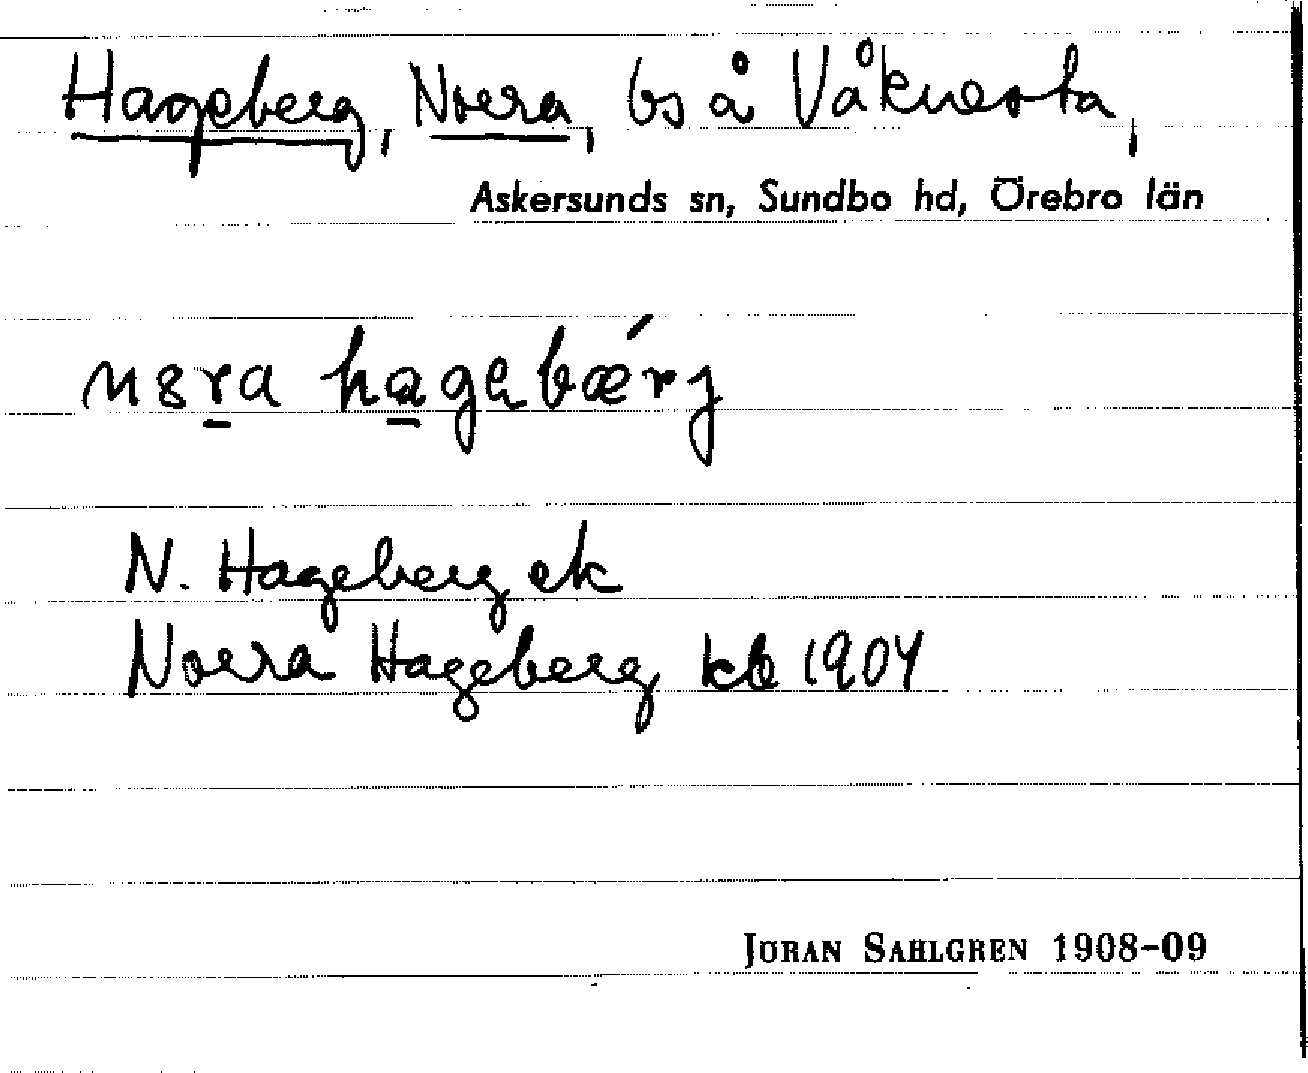 Hageberg, Norra, bs å Våknesta,
Askersunds sn, Sundbo hd, Örebro län
hagebærj
N. Hageberg ek
Norra Hageberg kb 1904
JÖRAN SAHLGREN 1908-09